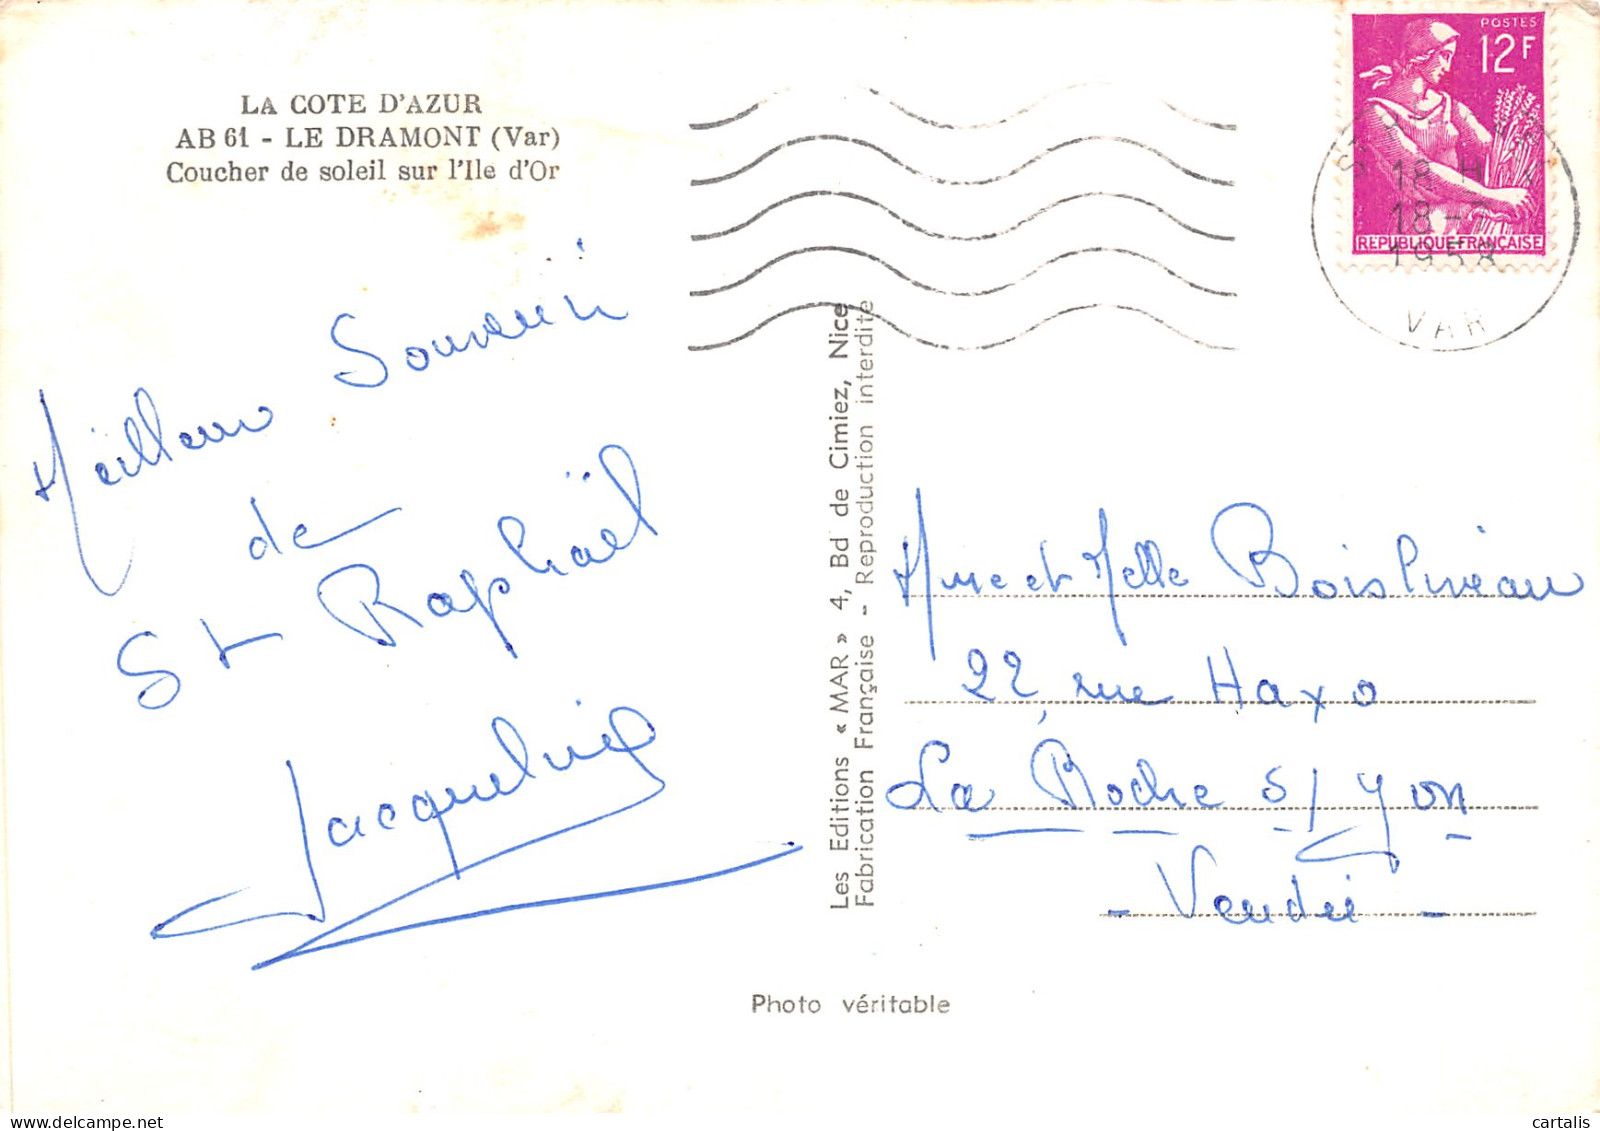 LA COTE D'AZUR
AB 61 - LE DRAMONT (Var)
Coucher de soleil sur l'Ile d'Or
Meilleur Souvenir
de
St Raphaël
Jacqueline
Les Editions « MAR » 4, Bd de Cimiez, Nice
Fabrication Française - Reproduction interdite
Photo véritable
POSTES
12F
REPUBLIQUE FRANÇAISE
18 H
18-
1958
VAR
Mme et Melle Boislineau
22, rue Haxo
La Roche s/ Yon
- Vendée -
cartalis